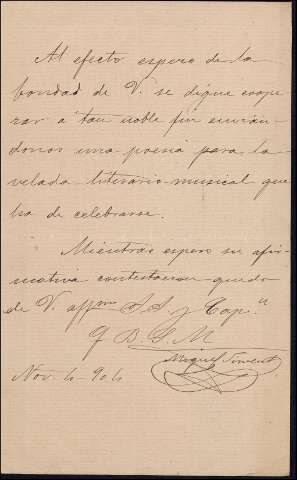 Al efecto espero de la
bondad de V. se digne coope
rar a tan noble fin envian
donos una poesia para la
velada literario-musical que
ha de celebrarse.
Mientras espero su afir
mativa contestacion quedo
de V. affmo S. S. y Cap.n
q B. S. M
Miguel
Nov. 4-904